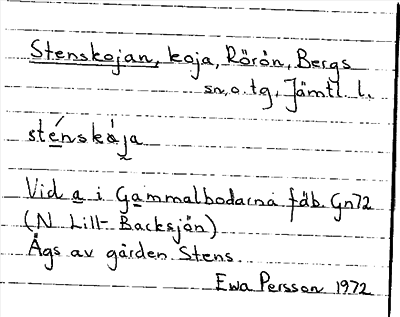 Stenskojan, koja, Rörön, Bergs
sn, o. tg, Jämtl. l.
sténskȧ̀ja
Vid a i Gammalbodarna fäb. Gn72
(N Lill-Backsjön)
Ägs av gården Stens.
Ewa Persson 1972